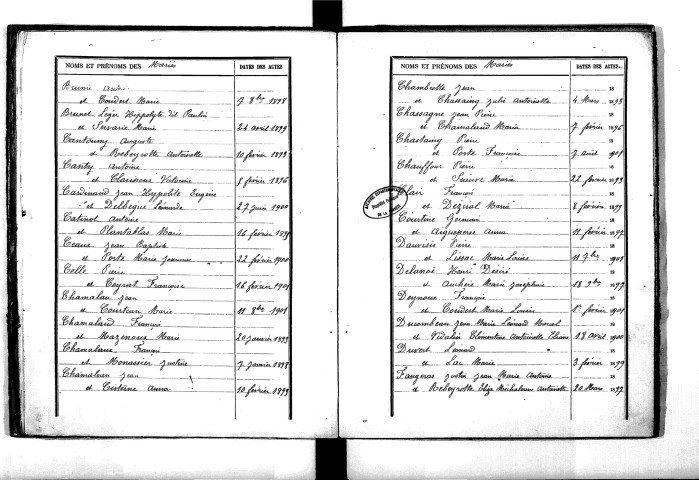 NOMS ET PRÉNOMS DES Mariés DATES DES ACTES
Brunie
et Coudert Marie 7 8bre 1898
Brunet Léger Hyppolyte dit Paulin
et Servarie Marie 24 avril 1899
Cantouny Auguste
et Rebeyrotte Antoinette 10 février 1893
Canty Antoine
et Claireaux Victorine 8 février 1896
Cardinaud Jean Hyppolite Eugène
et Delbègue Léonarde 27 juin 1900
Catinot Antoine
et Plantablas Marie 16 février
Ceaux Jean Baptiste
et Porte Marie 22 février 1900
Celle Pierre
et Ceyrat Françoise 16 février 1901
Chamalan Jean
et Courteau Marie 11 8bre 1901
Chamaland François
et Mazenoux Marie 20 janvier 1893
François
et Monassier Justine 7 janvier 1898
Chamaleau Jean
et Cisterne Anna 10 février 1899
NOMS ET PRÉNOMS DES Mariés DATES DES ACTES
Chambette Jean 18
et Chassaing Julie Antoinette 4 Mars 1893
Chassagne Jean Pierre 18
et Chamaland Marie 7 février 1896
Chastaing Pierre 18
et Porte Françoise 7 avril 1901
Chauffour Pierre 18
et Sauve Marie 22 février 1893
Clair François 18
et Dezirat Marie 8 février 1899
Courtine Germain 18
et Aigueperse Anna 11 février 1897
Dauvisis Pierre 18
et Lissac Marie Louise 11 7bre 1901
Delanoë Henri Désiré 18
et Aubois Marie Josephine 18 9bre 1897
Deynoux François 18
et Coudert Marie Louise 1er février 1901
Ducombeau Jean Marie Léonard Marcel 18
et Vidalin Clémentine Antoinette 18 avril 1900
Duvert Léonard 18
et Lac Marie 3 février 1899
Faugeras Justin Jean Marie Antoine 18
et Rebeyrotte Antoinette 20 Mars 1897